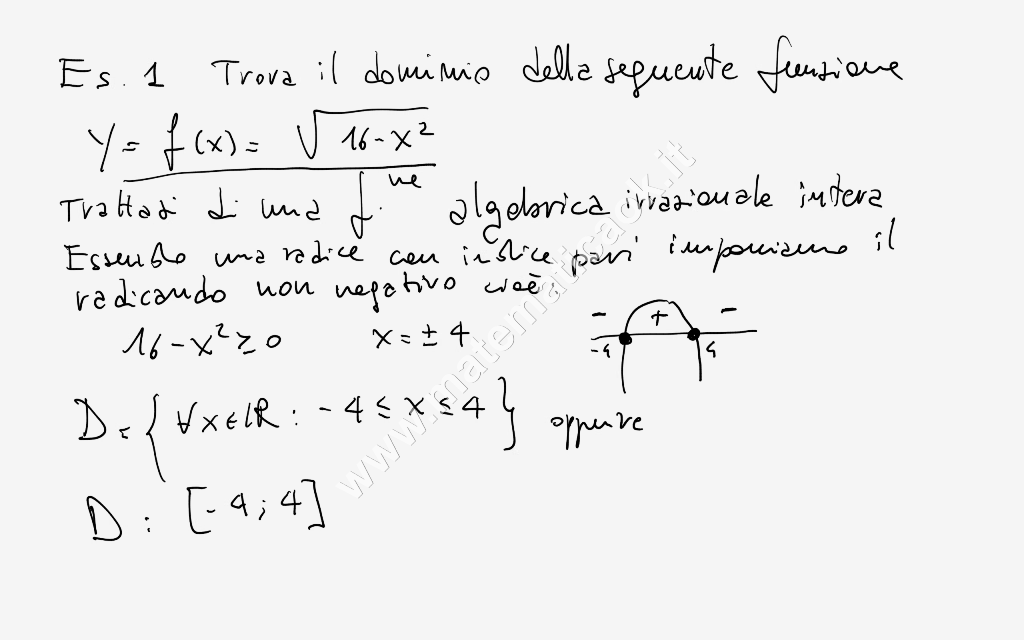 Es. 1 Trova il dominio della seguente funzione
y = f(x) = √16-x²
Trattasi di una f.ne algebrica irrazionale intera
Essendo una radice con indice pari imponiamo il
radicando non negativo cioè:
16-x² ≥ 0 x = ± 4
- + -
-4 4
D = { ∀x∈ℝ : -4 ≤ x ≤ 4 } oppure
D : [-4; 4]
www.matematicack.it